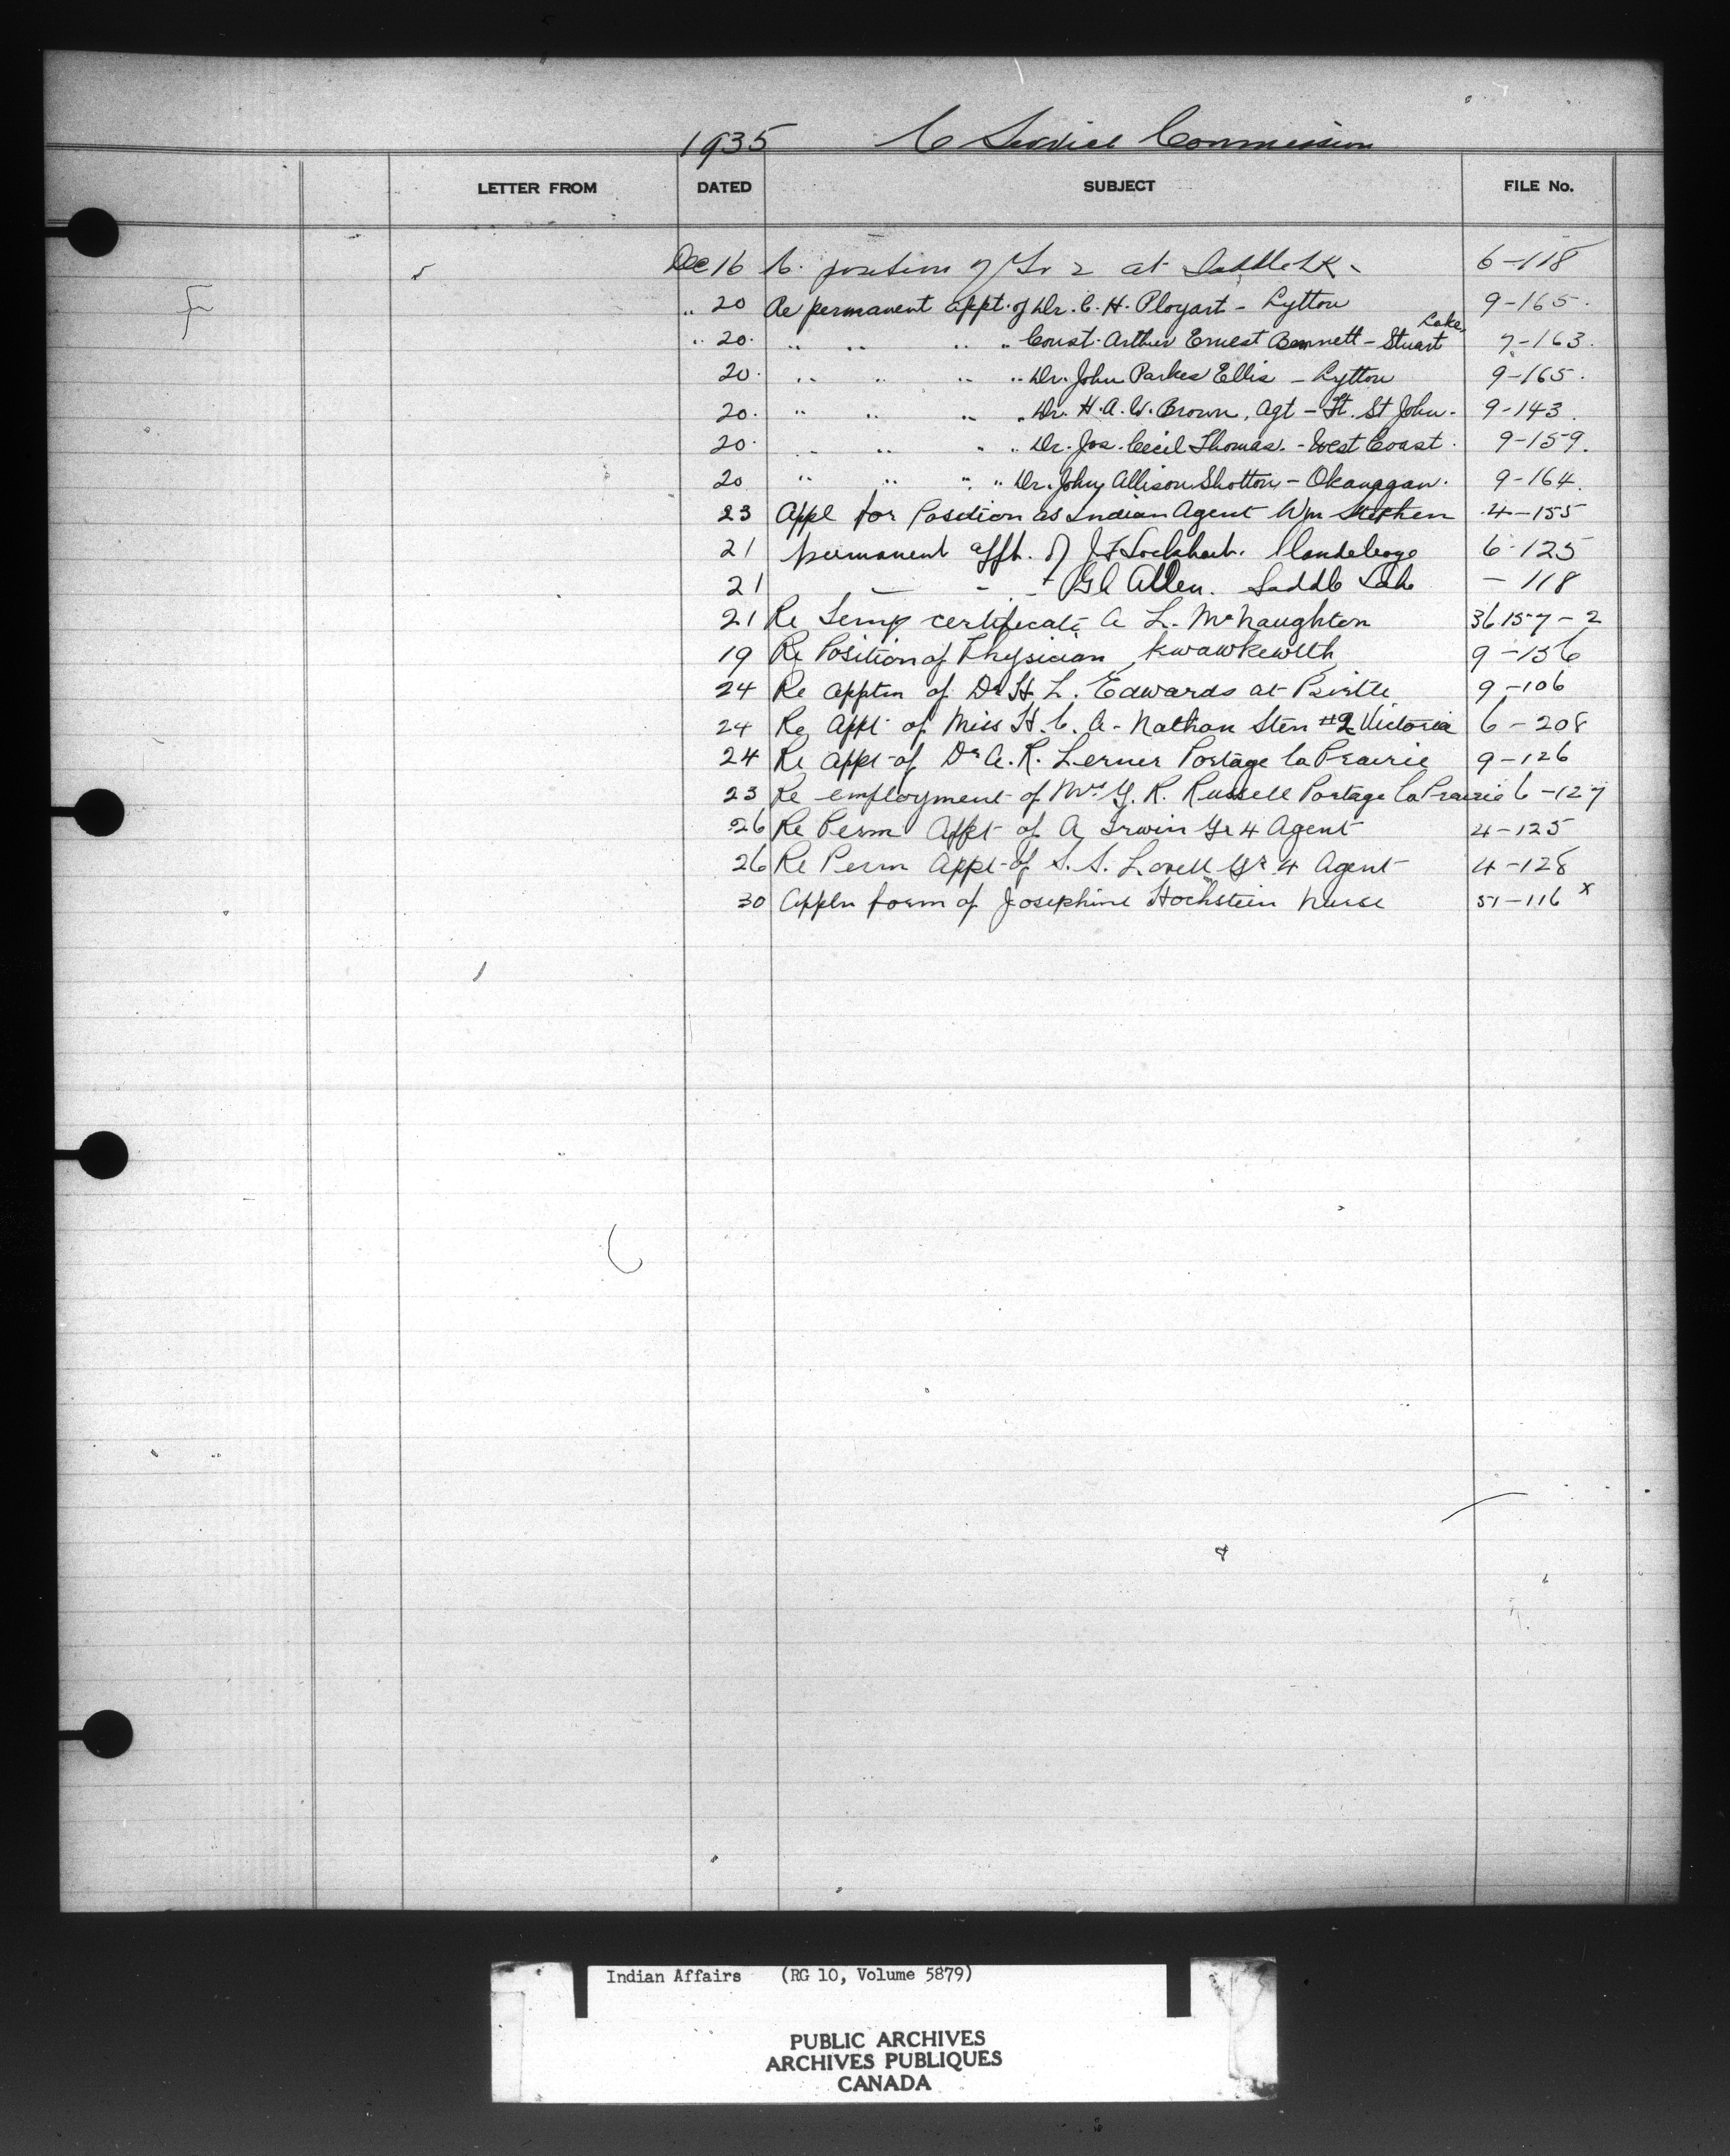 1935 C Service Commission
LETTER FROM DATED SUBJECT FILE No.
Dec 16 C. position of Gr 2 at Saddle Lk - 6-118
" 20 Re permanent appt. of Dr. C. H. Ployart - Lytton 9-165.
" 20. " " " " Const. Arthur Ernest Bennett - Stuart Lake 7-163.
20. " " " " Dr. John Parkes Ellis - Lytton 9-165.
20. " " " " Dr. H. A. W. Brown, Agt - Ft. St John. 9-143.
20. " " " " Dr. Jos. Cecil Thomas. - West Coast. 9-159.
20 " " " " Dr. John Allison Shotton - Okanagan. 9-164.
23 Appl for Position as Indian Agent Wm Stephen 4-155
21 permanent appt. of J F Lockhart. Clandeboye 6-125
21 - - - G C Allen. Saddle Lake - 118
21 Re Temp certificate A L. McNaughton 36157-2
19 Re Position of Physician Kwawkewlth 9-156
24 Re apptm of Dr H L. Edwards at Birtle 9-106
24 Re Appt of Miss H. C. A. Nathan Sten #2 Victoria 6-208
24 Re Appt of Dr A. R. Lerner Portage la Prairie 9-126
23 Re employment of Mrs G. R. Russell Portage la Prairie 6-127
26 Re Perm Appt of A Irwin Gr 4 Agent 4-125
26 Re Perm Appt of S. S. Lovell Gr 4 Agent 4-128
30 Appln form of Josephine Hochstein Nurse 51-116 x
Indian Affairs (RG 10, Volume 5879)
PUBLIC ARCHIVES
ARCHIVES PUBLIQUES
CANADA